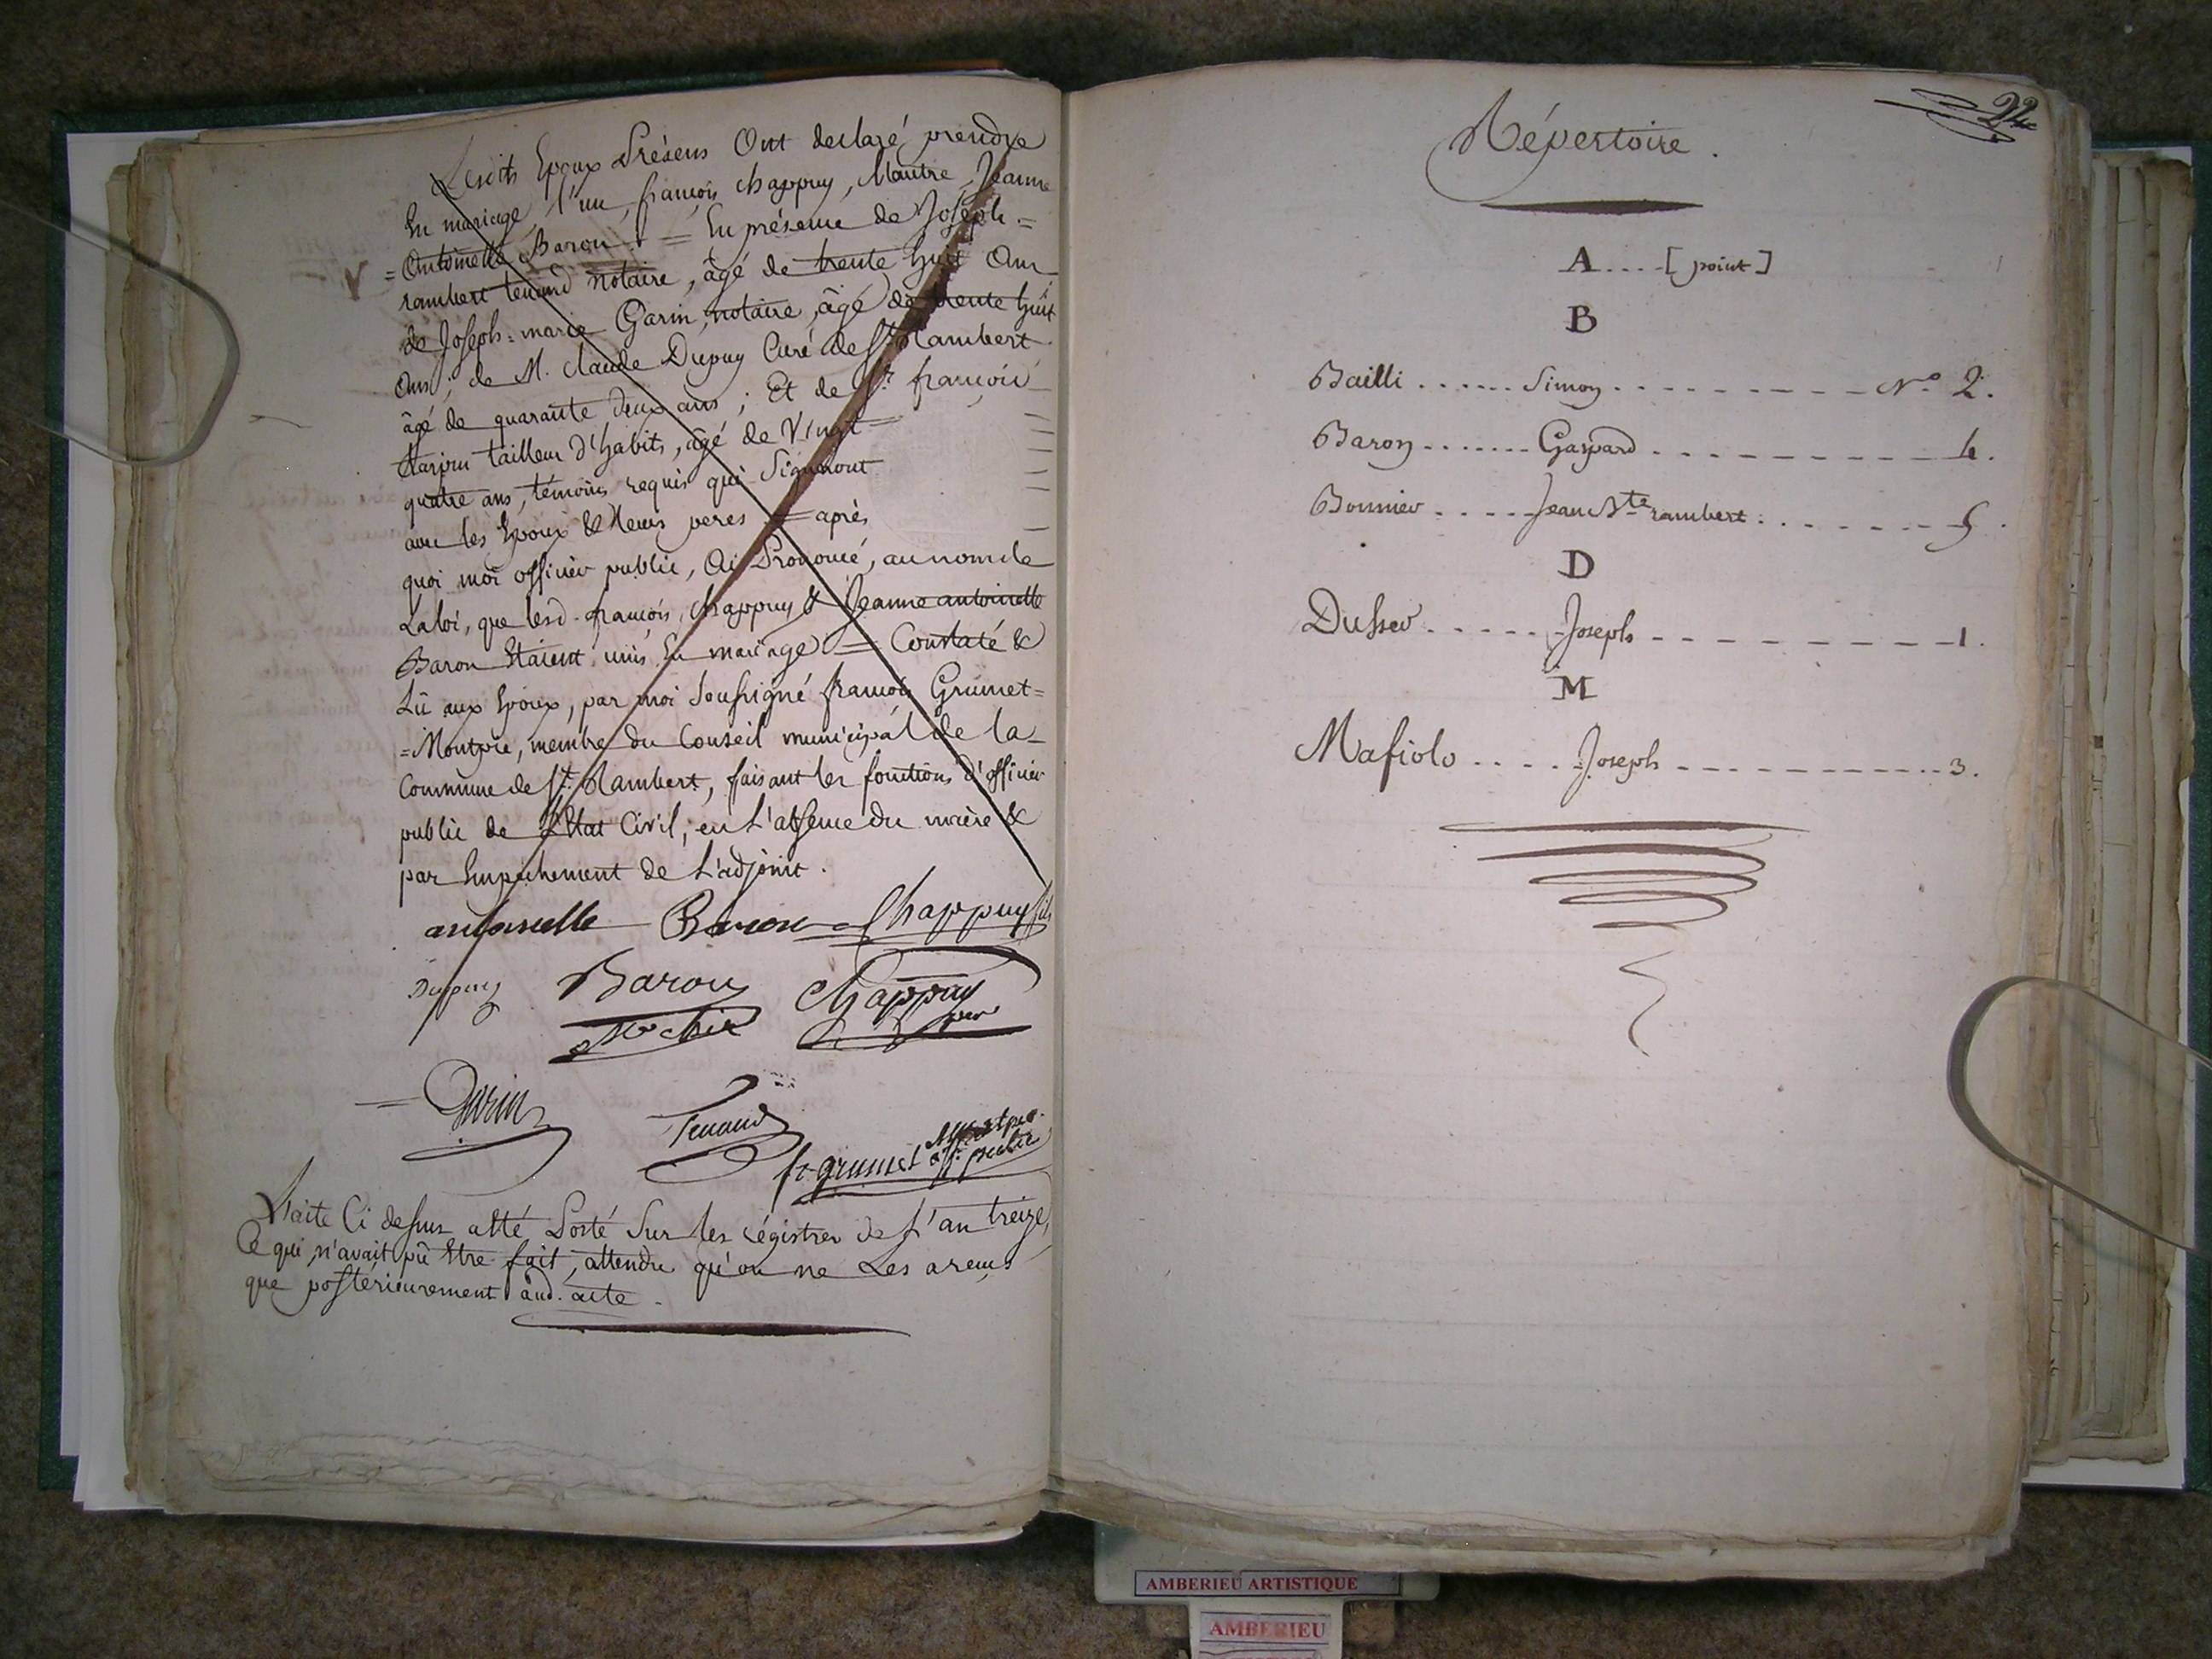 Lesdits Epoux Présens Ont declaré prendre
En mariage, l'un, françois chappuy, L'autre, Jeanne
= Antoinette Baron = En présence de Joseph =
rambert tenand notaire, âgé de trente huit Ans
de Joseph = marie Garin, notaire, âgé de trente huit
Ans; de M. claude Dupuy Curé de St Rambert
âgé de quarante deux ans; Et de Sr. françois
tailleur d'habits, âgé de Vingt =
quatre ans, témoins requis qui Signeront
avec les Epoux & leurs peres = après
quoi moi officier public, Ai Prononcé, au nom de
La loi, que lesd. françois, chappuy & Jeanne antoinette
Baron Etaient unis En mariage = Constaté &
Lû aux Epoux, par moi Soussigné françois Grumet =
= Montpie, membre du Conseil municipal de la
Commune de St. Rambert, faisant les fonctions d'officier
public de L'Etat Civil, en L'absence du maire &
par Empêchement de L'adjoint.
antoinette Baron Chappuy fils
Dupuy Baron Chappuy
pere
Garin Tenand
fs grumet Montpie
off. public
L'acte Ci dessus a été Porté Sur les régistres de L'an treize,
Ce qui n'avait pû Etre fait, attendu qu'on ne Les a reçus
que postérieurement aud. acte.
24
Répertoire.
A....[point]
B
Bailli ...... Simon ........ No. 2.
Baron ....... Gaspard ........ 4.
Bonnier ..... Jean Bte rambert ........ 5.
D
Dusser ...... Joseph ........ 1.
M
Mafiolo ..... Joseph ........ 3.
AMBERIEU ARTISTIQUE
AMBERIEU